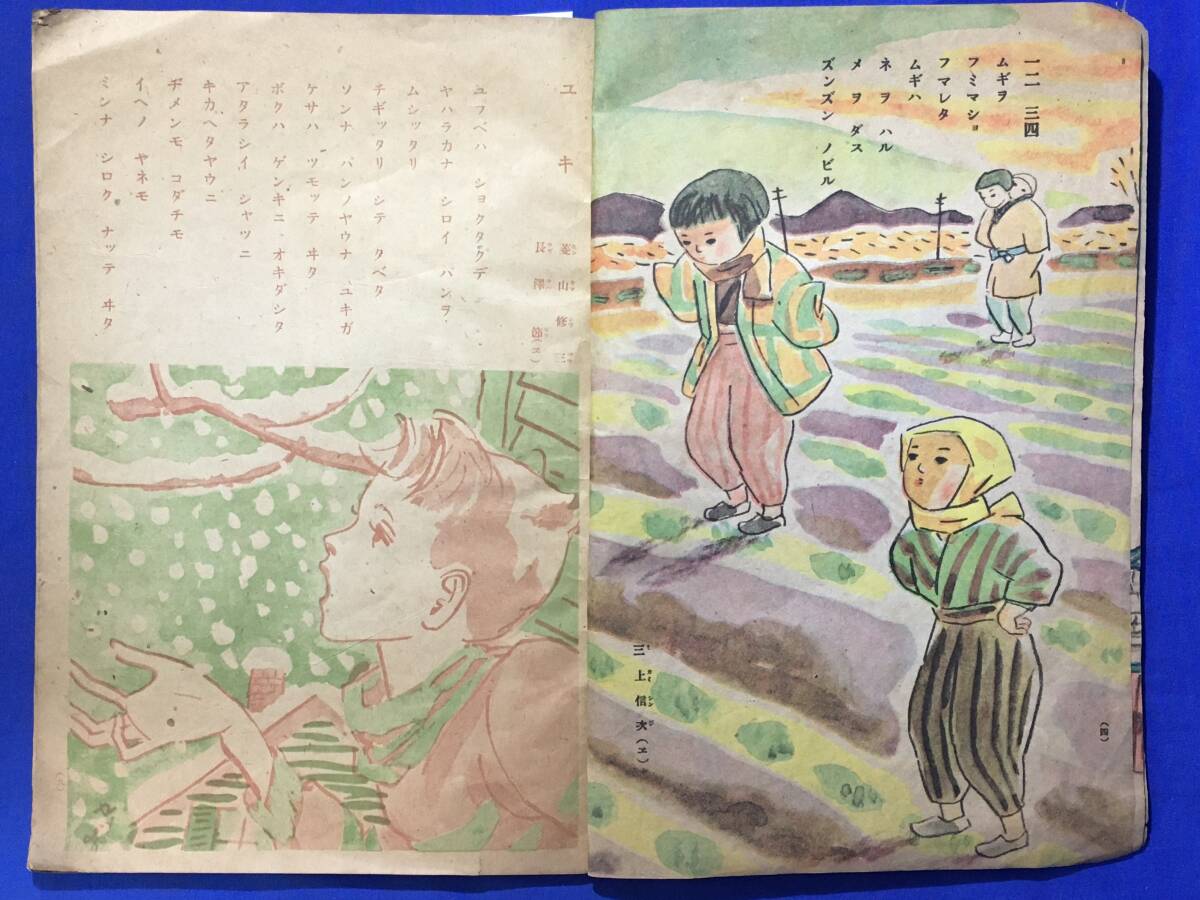 一二 三四
ムギヲ
フミマショ
フマレタ
ムギハ
ネ ヲ ハル
メ ヲ ダス
ズンズン ノビル
三上信次(ヱ)
(四)
ユキ
菱山修三
長澤節(ヱ)
ユフベハ ショクタクデ
ヤハラカナ シロイ パンヲ
ムシッタリ
チギッタリ シテ タベタ
ソンナ パンノヤウナ ユキガ
ケサハ ツモッテ ヰタ
ボクハ ゲンキニ オキダシタ
アタラシイ シャツニ
キカヘタヤウニ
ヂメンモ コダチモ
イヘノ ヤネモ
ミンナ シロク ナッテ ヰタ